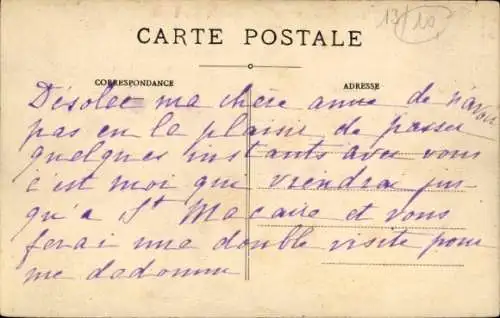 13/10
CARTE POSTALE
CORRESPONDANCE
ADRESSE
Désolée ma chère amie de n'avoir
pas eu le plaisir de passer
quelques instants avec vous
c'est moi qui viendra jus
qu'a St Macaire et vous
ferai une double visite pour
me dedomm